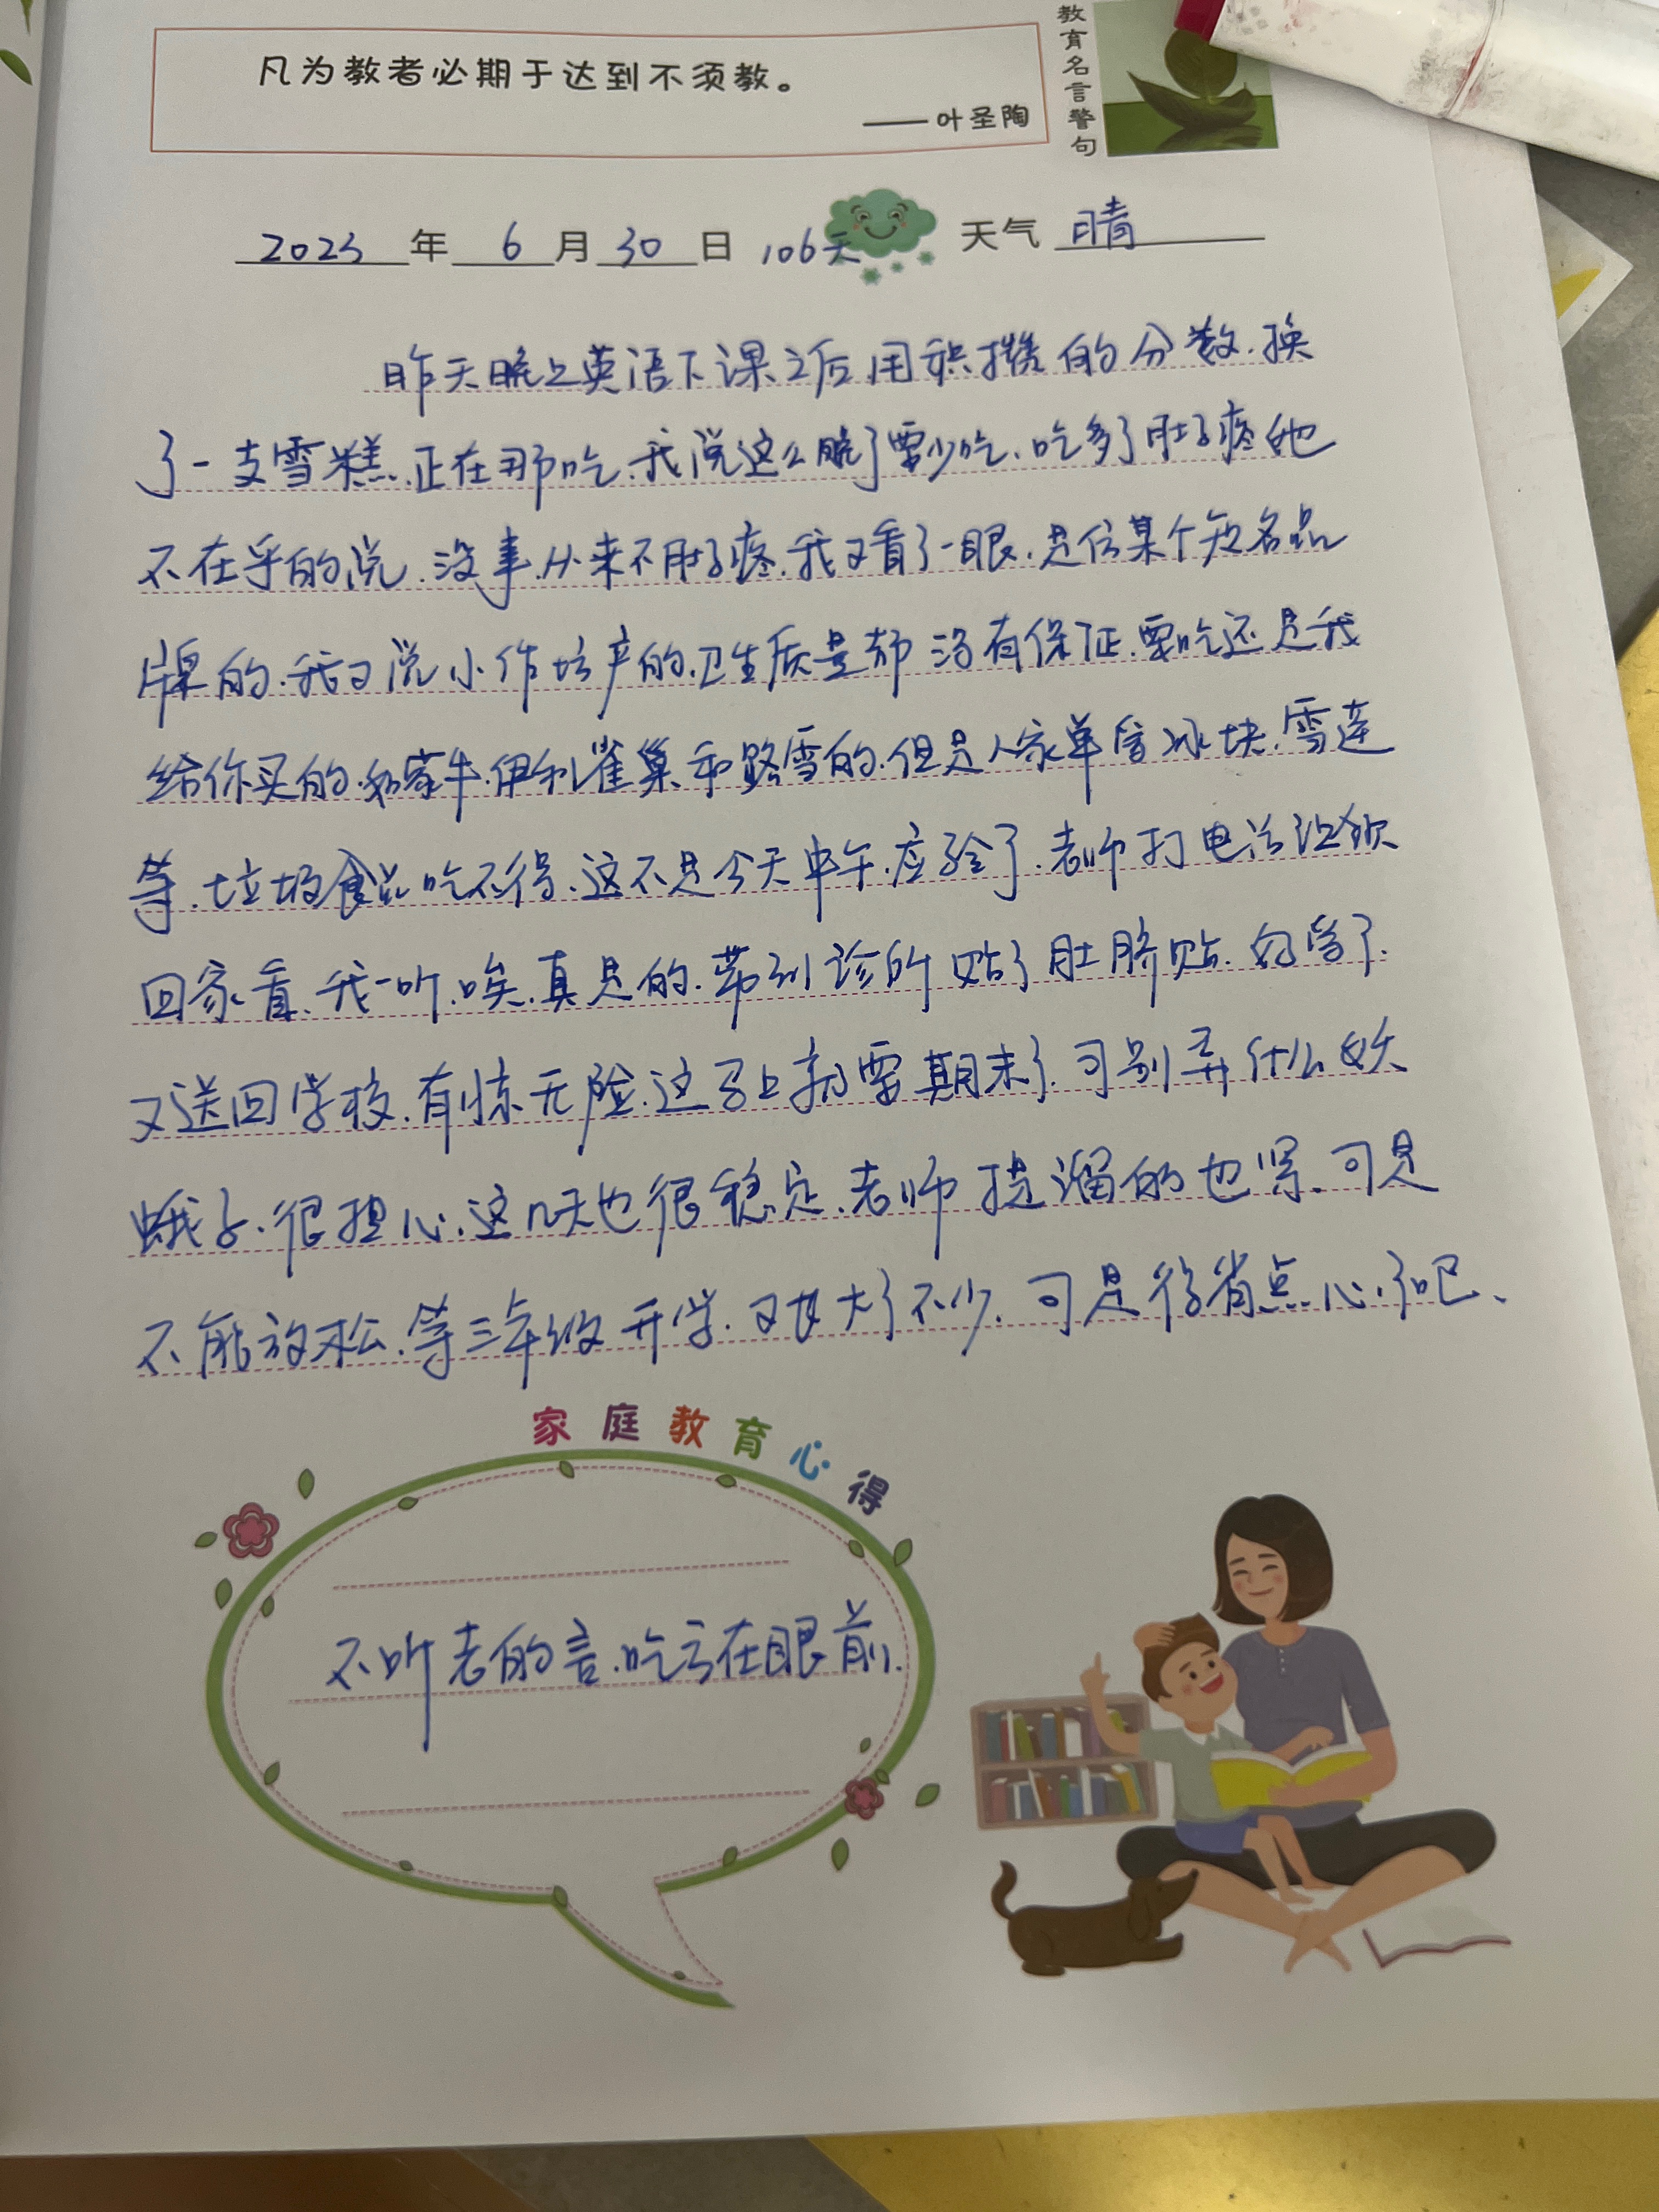 凡为教者必期于达到不须教。
——叶圣陶
教育名言警句
2023年 6月30日 106天 天气 晴
昨天晚上英语下课之后用积攒的分数.换
了一支雪糕.正在那吃.我说这么晚了要少吃、吃多了肚子疼她
不在乎的说.没事.从来不肚子疼.我又看了一眼.是仿某个知名品
牌的.我又说小作坊产的.卫生质量都没有保证.要吃还是我
给你买的.如蒙牛.伊利雀巢和路雪的.但是人家单吃冰块.雪莲
等.垃圾食品吃不得.这不是今天中午.应验了.老师打电话让领
回家看.我一听.唉.真是的.带到诊所贴了肚脐贴.好点了.
又送回学校.有惊无险.这马上就要期末了.可别弄什么妖
蛾子.很担心.这几天也很稳定.老师提溜的也紧.可是
不能放松.等三年级开学.又长大了不少.可是得省点心了吧、
家庭教育心得
不听老的言.吃亏在眼前.